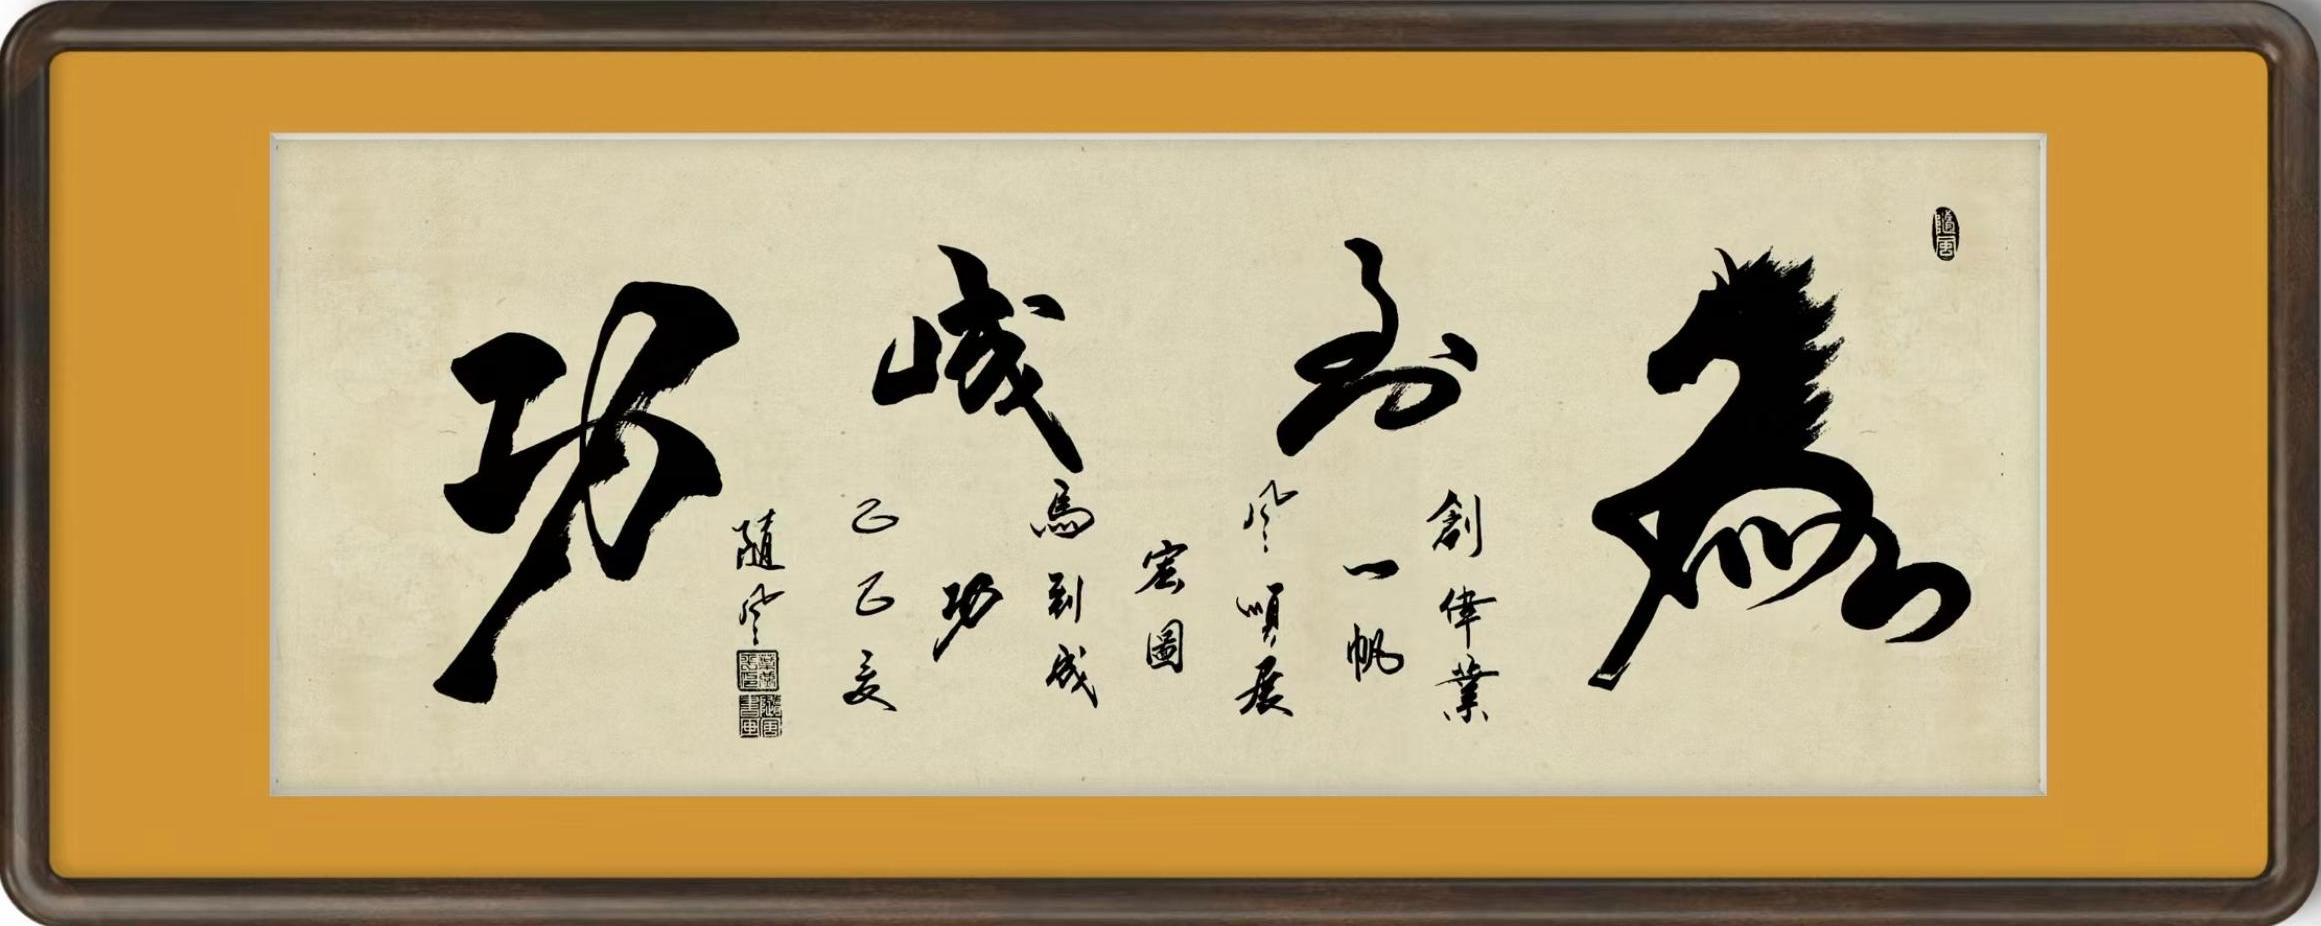 馬到成功
創偉業
一帆
風順展
宏圖
馬到成
功
乙巳夏
隨風
隨風書畫
隨風